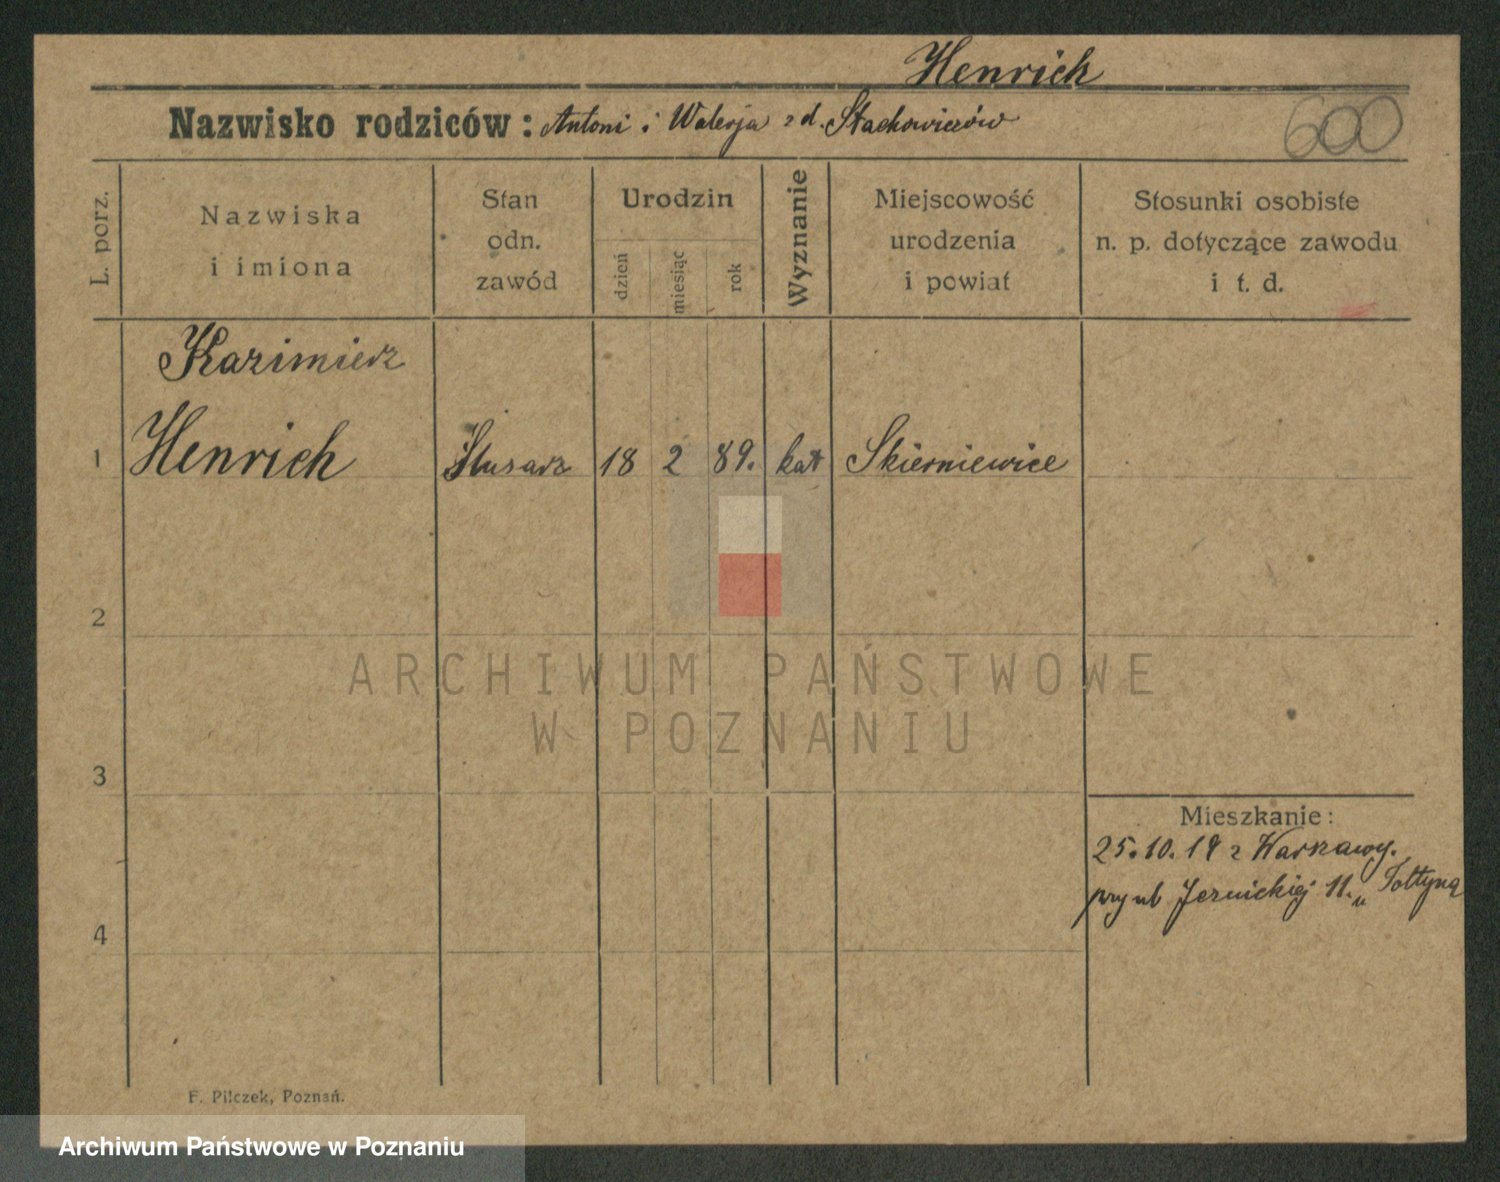 Henrich
Nazwisko rodziców: Antoni i Walerja z d. Stachowiczów
600
L. porz.
Nazwiska
i imiona
Stan
odn.
zawód
Urodzin
dzień
miesiąc
rok
Wyznanie
Miejscowość
urodzenia
i powiat
Stosunki osobiste
n. p. dotyczące zawodu
i t. d.
Kazimierz
1 Henrich Ślusarz 18 2 89. kat Skierniewice
2
ARCHIWUM PAŃSTWOWE
W POZNANIU
3
Mieszkanie:
25.10.19 z Warszawy.
przy ul 11. u
4
F. Pilczek, Poznań.
Archiwum Państwowe w Poznaniu